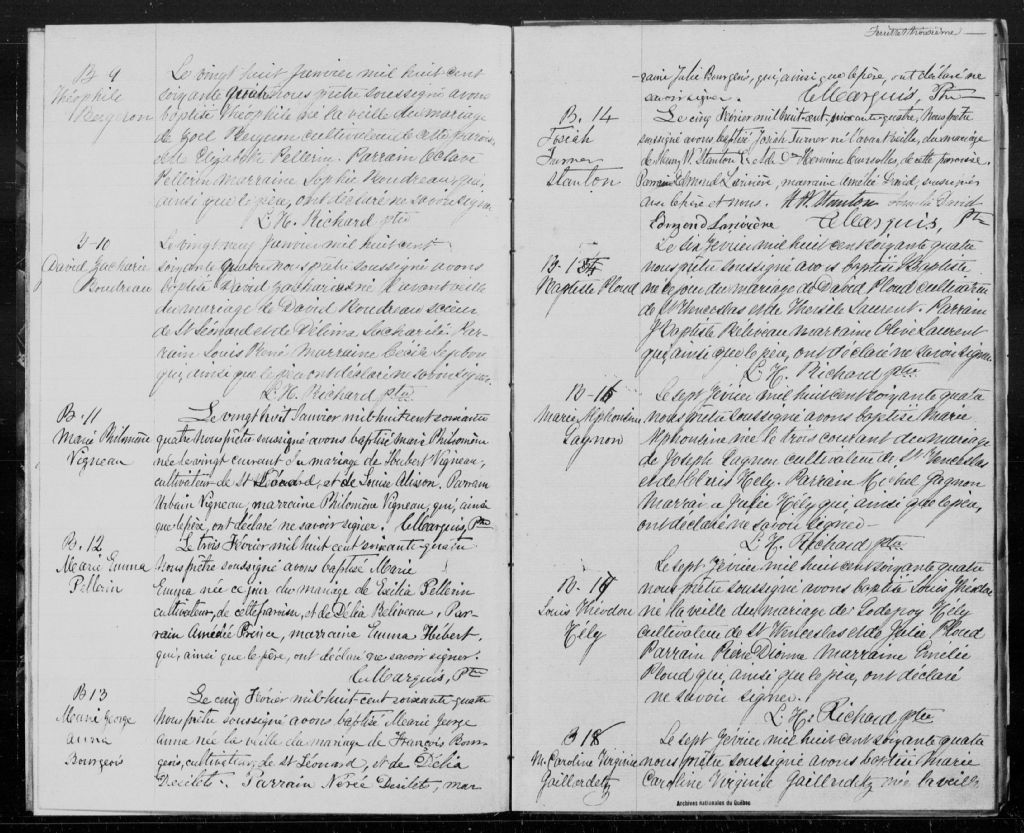 B 9
Théophile
Bergeron
Le vingt huit Janvier mil huit cent
soixante quatre nous prêtre soussigné avons
baptisé Théophile né la veille du mariage
de Joel Bergeron cultivateur de cette paroisse
et de Elizabeth Pellerin. Parrain Octave
Pellerin Marraine Sophie Boudreau qui,
ainsi que le père, ont déclaré ne savoir signer
L. H. Richard ptre
B-10
David Zacharie
Boudreau
Le vingt neuf Janvier mil huit cent
soixante quatre nous prêtre soussigné avons
baptisé David Zacharie né l'avant veille
du mariage de David Boudreau
de St Léonard et de Délima Par-
rain Louis René Marraine Cécile
qui, ainsi que le père ont déclaré ne savoir signer.
L. H. Richard ptre
B. 11
Marie Philomène
Vigneau
Le vingt huit Janvier mil huit cent soixante
quatre Nous prêtre soussigné avons baptisé Marie Philomène
née le vingt courant du mariage de Hubert Vigneau,
cultivateur de St Léonard, et de Louise Alisson. Parrain
Urbain Vigneau, marraine Philomène Vigneau, qui, ainsi
que le père, ont déclaré ne savoir signer. C. Marquis, Ptre
B. 12
Marie Emma
Pellerin
Le trois Février mil huit cent soixante-quatre
Nous prêtre soussigné avons baptisé Marie
Emma née ce jour du mariage de Exilia Pellerin
cultivateur, de cette paroisse, et de Délia Beliveau. Par-
rain Amédée Prince, marraine Emma Hébert,
qui, ainsi que le père, ont déclaré ne savoir signer.
C. Marquis, Ptre
B 13
Marie George
Anna
Bourgeois
Le cinq Février mil huit cent soixante quatre
Nous prêtre soussigné avons baptisé Marie George
Anna née la veille du mariage de François Bour-
geois, cultivateur, de St Léonard, et de Délia
Desilets. Parrain Nérée Desilets, mar
Feuillet troisième
raine Julie Bourgeois, qui, ainsi que le père, ont déclaré ne
savoir signer. C. Marquis, Ptre
B. 14
Josiah
Turner
Stanton
Le cinq Février mil huit cent soixante quatre, Nous prêtre
soussigné avons baptisé Josiah Turner né l'avant veille, du mariage
de Stanton et de Dme Hermine de cette paroisse.
Parrain Edmond Larivière, marraine Amélie David, soussignés
avec le père et nous. Stanton Amélie David
Edmond Larivière C. Marquis, Ptre
B-15
J Baptiste Ploud
Le six Février mil huit cent soixante quatre
nous prêtre soussigné avons baptisé J Baptiste
né ce jour du mariage de David Ploud cultivateur
de St Wenceslas et de Thersile Laurent. Parrain
J Baptiste Beliveau marraine Olive Laurent
qui, ainsi que le père, ont déclaré ne savoir signer.
L. H. Richard ptre
B-16
Marie Alphonsine
Gagnon
Le sept Février mil huit cent soixante quatre
nous prêtre soussigné avons baptisé Marie
Alphonsine née le trois courant du mariage
de Joseph Gagnon cultivateur de St Wenceslas
et de Hély. Parrain Michel Gagnon
Marraine Julie Hély qui, ainsi que le père,
ont déclaré ne savoir signer
L. H. Richard ptre
B-17
Louis Théodore
Hély
Le sept Février mil huit cent soixante quatre
nous prêtre soussigné avons baptisé Louis Théodore
né la veille du mariage de Godefroy Hély
cultivateur de St Wenceslas et de Julie Ploud
Parrain Pierre Dionne Marraine Emélie
Ploud qui, ainsi que le père, ont déclaré
ne savoir signer.
L. H. Richard ptre
B 18
M. Caroline Virginie
Gaillardetz
Le sept Février mil huit cent soixante quatre
nous prêtre soussigné avons baptisé Marie
Caroline Virginie Gaillardetz née la veille
Archives nationales du Québec